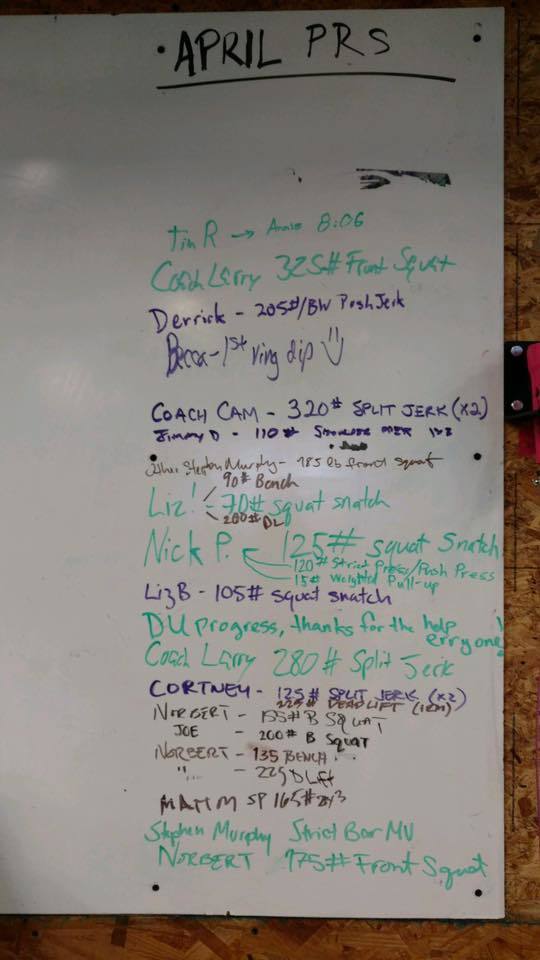 APRIL PRS
Tim R → Annie 8:06
Coach Larry 325# Front Squat
Derrick - 205#/BW Push Jerk
Becca - 1st ring dip
COACH CAM - 320# SPLIT JERK (x2)
Jimmy D - 110#
Stephen Murphy - 185 lb front squat
90# Bench
Liz! - 70# squat snatch
200# DL
Nick P. 125# squat snatch
120# Strict Press/Push Press
15# Weighted Pull-up
Liz B - 105# squat snatch
DU progress, thanks for the help
erryone!
Coach Larry 280# Split Jerk
CORTNEY - 125# SPLIT JERK (x2)
225# DEADLIFT (1RM)
NORBERT - 155# B SQUAT
JOE - 200# B SQUAT
NORBERT - 135 BENCH
"... - 225 DLift
MATT M SP 165#
Stephen Murphy Strict Bar MU
NORBERT 175# Front Squat